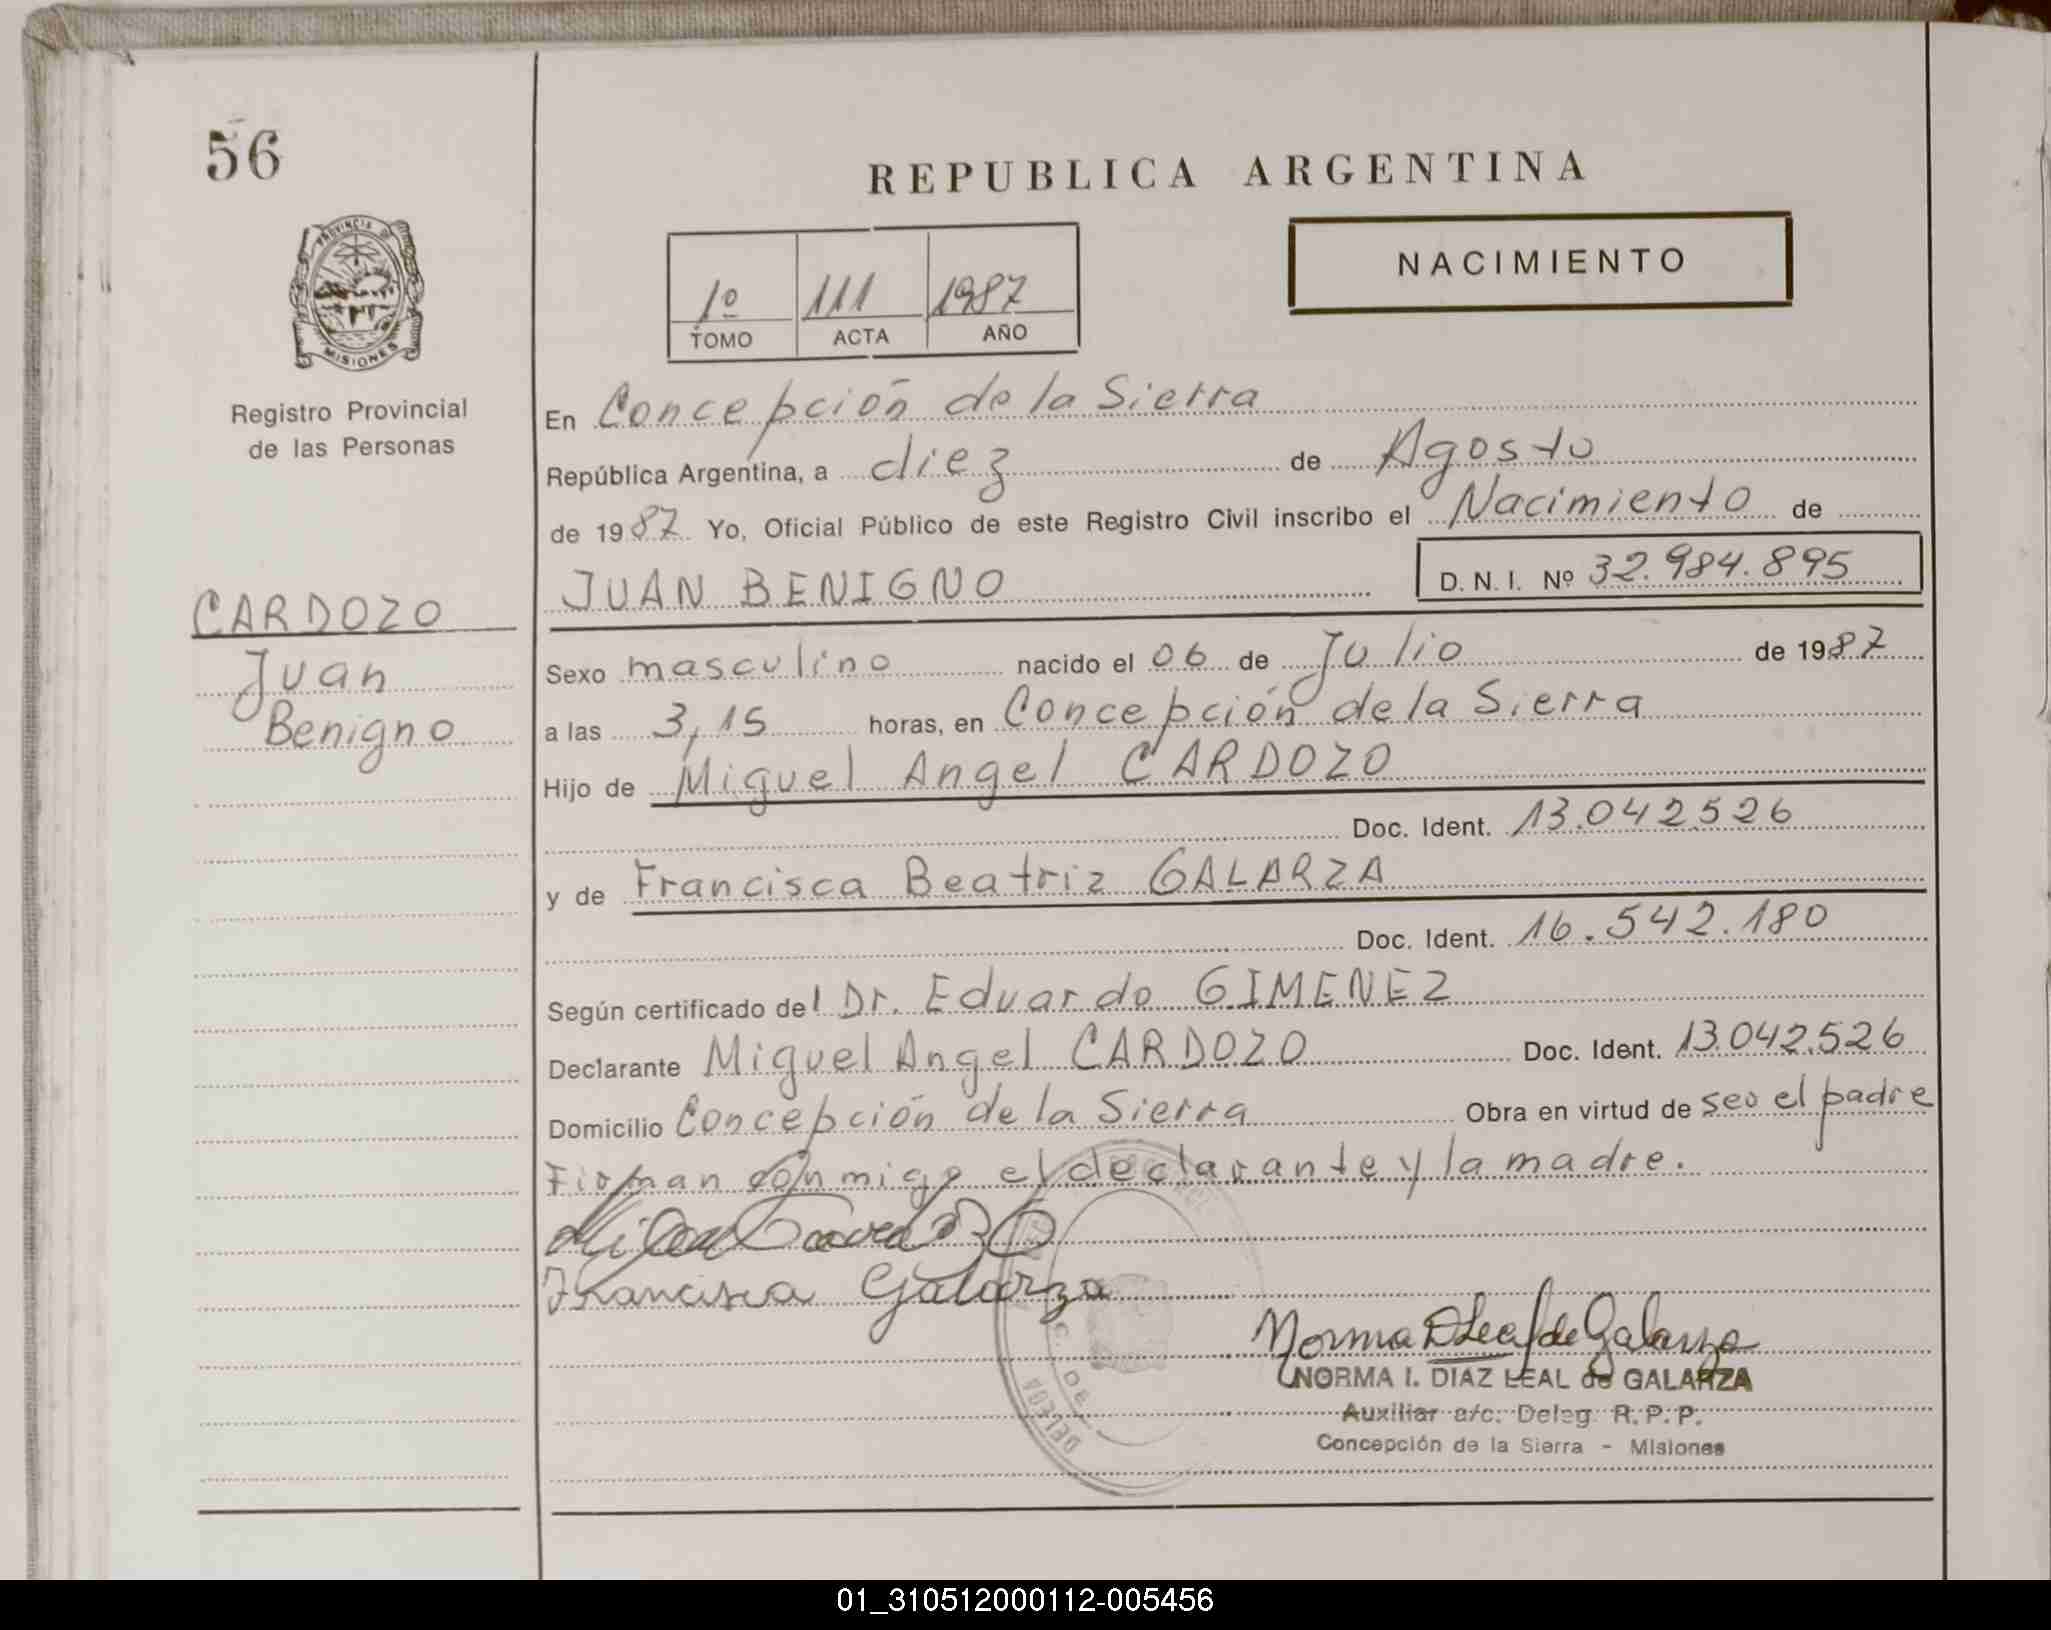 56
REPUBLICA ARGENTINA
NACIMIENTO
1º 111 1987
TOMO ACTA AÑO
PROVINCIA DE
MISIONES
Registro Provincial
de las Personas
CARDOZO
Juan
Benigno
En Concepción de la Sierra
República Argentina, a diez de Agosto
de 1987 Yo, Oficial Público de este Registro Civil inscribo el Nacimiento de
JUAN BENIGNO D.N.I. Nº 32.984.895
Sexo masculino nacido el 06 de Julio de 1987
a las 3,15 horas, en Concepción de la Sierra
Hijo de Miguel Angel CARDOZO
Doc. Ident. 13.042.526
y de Francisca Beatriz GALARZA
Doc. Ident. 16.542.180
Según certificado del Dr. Eduardo GIMENEZ
Declarante Miguel Angel CARDOZO Doc. Ident. 13.042.526
Domicilio Concepción de la Sierra Obra en virtud de ser el padre
Firman conmigo el declarante y la madre.
Francisca Galarza
Norma D. Leal de Galarza
NORMA I. DIAZ LEAL de GALARZA
Auxiliar a/c. Deleg. R.P.P.
Concepción de la Sierra - Misiones
01_310512000112-005456